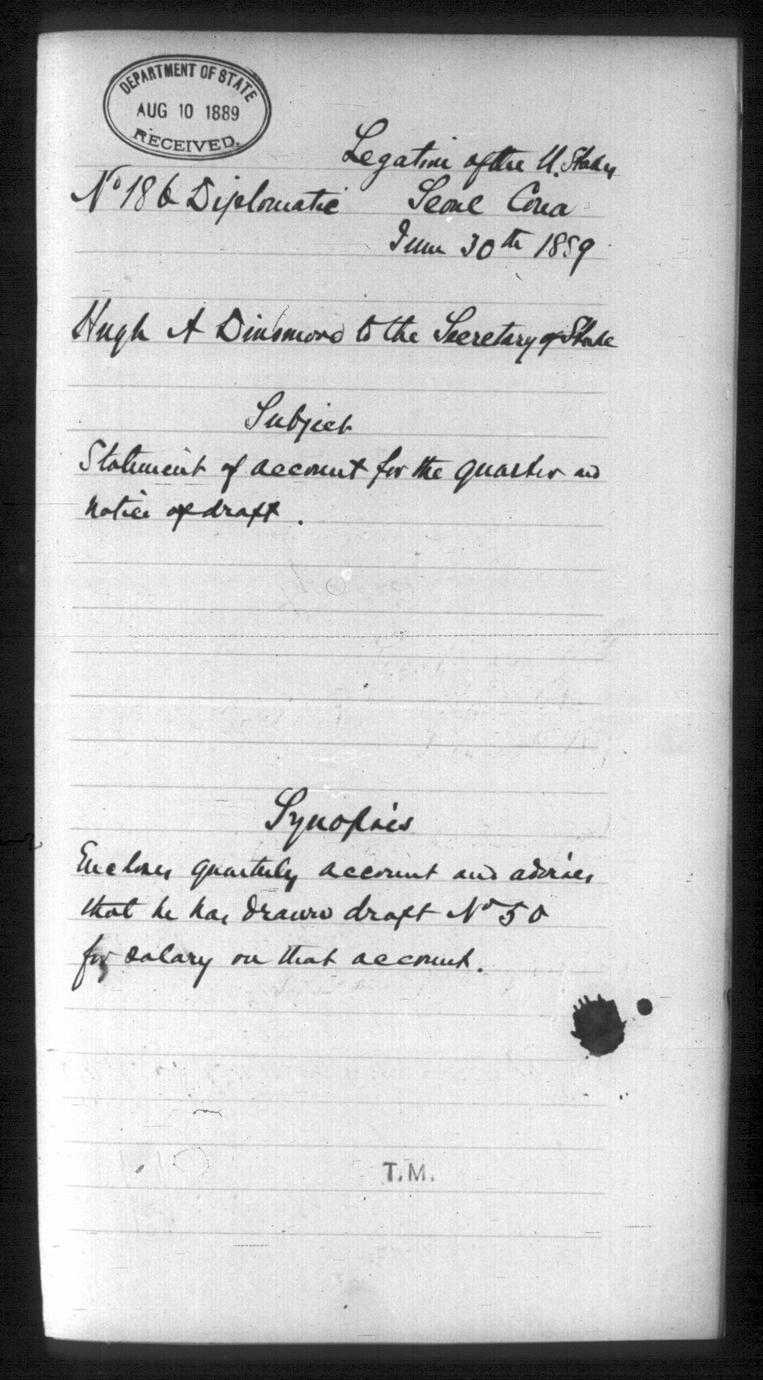 DEPARTMENT OF STATE
AUG 10 1889
RECEIVED.
Legation of the U. States
No 186 Diplomatic Seoul Corea
June 30th 1889
Hugh A Dinsmore to the Secretary of State
Subject
Statement of account for the quarter and
notice of draft.
Synopsis
Encloses quarterly account and advises
that he has drawn draft No 50
for salary on that account.
T.M.